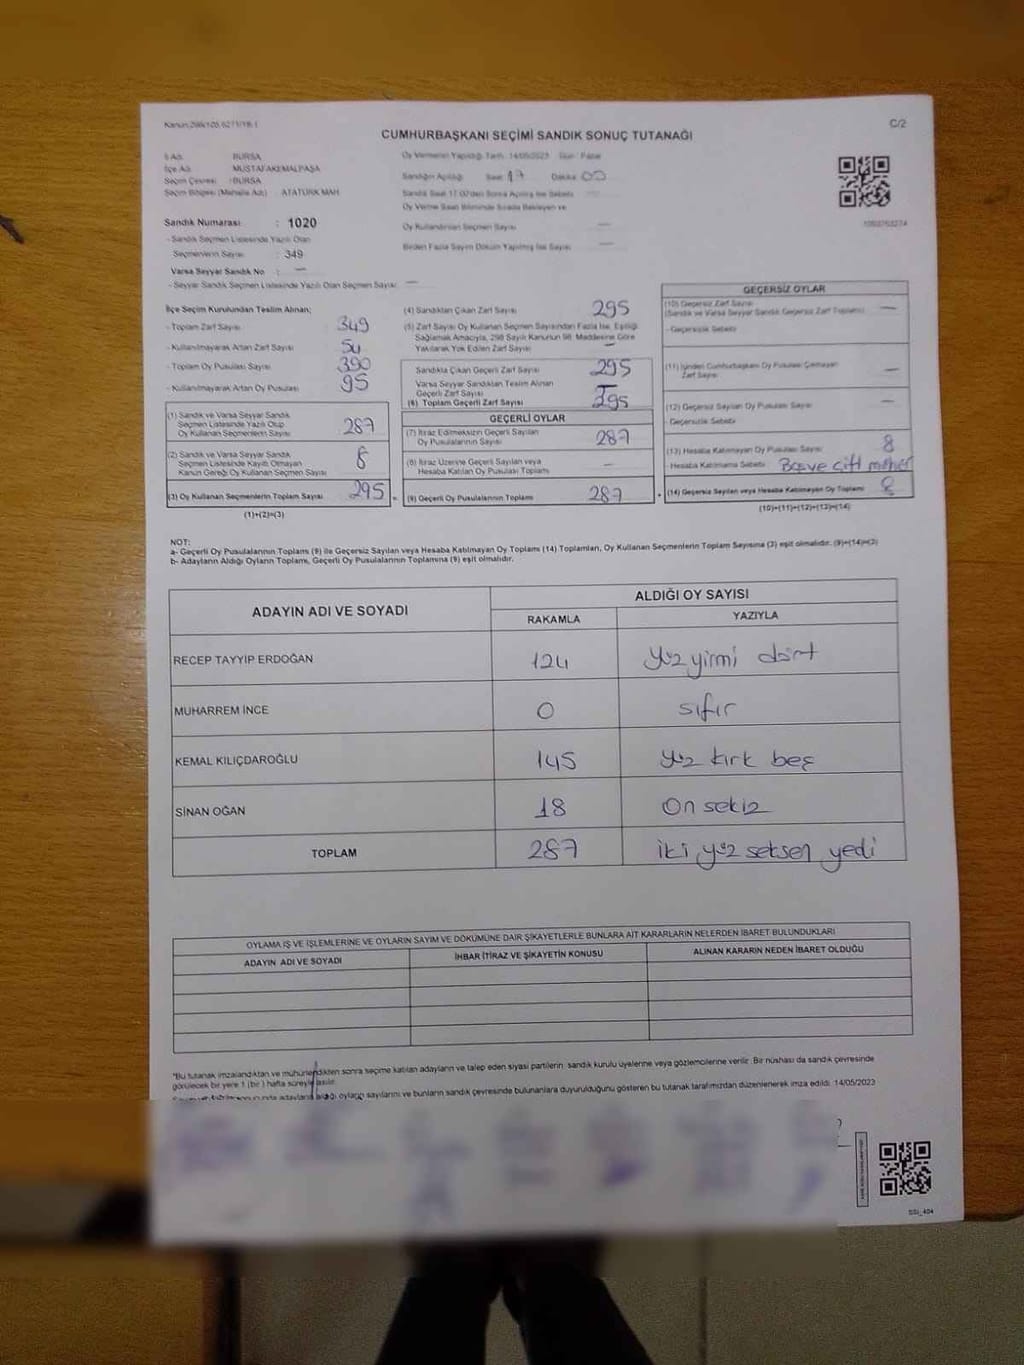 C/2
CUMHURBAŞKANI SEÇİMİ SANDIK SONUÇ TUTANAĞI
İl Adı : BURSA
İlçe Adı : MUSTAFAKEMALPAŞA
Seçim Çevresi : BURSA
Seçim Bölgesi (Mahalle Adı) : ATATÜRK MAH
Oy Vermenin Yapıldığı Tarih : 14/05/2023 Gün : Pazar
Sandığın Açıldığı Saat 17 Dakika 00
Oy Kullandırılan Seçmen Sayısı —
Birden Fazla Sayım Döküm Yapılmış İse Sayısı —
Sandık Numarası : 1020
- Sandık Seçmen Listesinde Yazılı Olan
Seçmenlerin Sayısı : 349
Varsa Seyyar Sandık No : —
- Seyyar Sandık Seçmen Listesinde Yazılı Olan Seçmen Sayısı: —
İlçe Seçim Kurulundan Teslim Alınan;
- Toplam Zarf Sayısı 349
- Kullanılmayarak Artan Zarf Sayısı 54
- Toplam Oy Pusulası Sayısı 390
- Kullanılmayarak Artan Oy Pusulası 95
(1) Sandık ve Varsa Seyyar Sandık
Seçmen Listesinde Yazılı Olup
Oy Kullanan Seçmenlerin Sayısı 287
(2) Sandık ve Varsa Seyyar Sandık
Seçmen Listesinde Kayıtlı Olmayan
Kanun Gereği Oy Kullanan Seçmen Sayısı 8
(3) Oy Kullanan Seçmenlerin Toplam Sayısı 295
(1)+(2)=(3)
(4) Sandıktan Çıkan Zarf Sayısı 295
(5) Zarf Sayısı Oy Kullanan Seçmen Sayısından Fazla İse, Eşitliği
Sağlamak Amacıyla, 298 Sayılı Kanunun 98. Maddesine Göre
Yakılarak Yok Edilen Zarf Sayısı —
Sandıkta Çıkan Geçerli Zarf Sayısı 295
Varsa Seyyar Sandıktan Teslim Alınan
Geçerli Zarf Sayısı —
(6) Toplam Geçerli Zarf Sayısı 295
GEÇERLİ OYLAR
(7) İtiraz Edilmeksizin Geçerli Sayılan
Oy Pusulalarının Sayısı 287
(8) İtiraz Üzerine Geçerli Sayılan veya
Hesaba Katılan Oy Pusulası Toplamı —
(9) Geçerli Oy Pusulalarının Toplamı 287
GEÇERSİZ OYLAR
(10) Geçersiz Zarf Sayısı
(Sandık ve Varsa Seyyar Sandık Geçersiz Zarf Toplamı) —
- Geçersizlik Sebebi
(11) İçinden Cumhurbaşkanı Oy Pusulası Çıkmayan
Zarf Sayısı —
(12) Geçersiz Sayılan Oy Pusulası Sayısı —
- Geçersizlik Sebebi
(13) Hesaba Katılmayan Oy Pusulası Sayısı 8
- Hesaba Katılmama Sebebi çift mühür
(14) Geçersiz Sayılan veya Hesaba Katılmayan Oy Toplamı 8
(10)+(11)+(12)+(13)=(14)
NOT:
a- Geçerli Oy Pusulalarının Toplamı (9) ile Geçersiz Sayılan veya Hesaba Katılmayan Oy Toplamı (14) Toplamları, Oy Kullanan Seçmenlerin Toplam Sayısına (3) eşit olmalıdır. (9)+(14)=(3)
b- Adayların Aldığı Oyların Toplamı, Geçerli Oy Pusulalarının Toplamına (9) eşit olmalıdır.
ADAYIN ADI VE SOYADI
ALDIĞI OY SAYISI
RAKAMLA YAZIYLA
RECEP TAYYİP ERDOĞAN 124 yüz yirmi dört
MUHARREM İNCE 0 sıfır
KEMAL KILIÇDAROĞLU 145 yüz kırk beş
SİNAN OĞAN 18 On sekiz
TOPLAM 287 iki yüz seksen yedi
OYLAMA İŞ VE İŞLEMLERİNE VE OYLARIN SAYIM VE DÖKÜMÜNE DAİR ŞİKAYETLERLE BUNLARA AİT KARARLARIN NELERDEN İBARET BULUNDUKLARI
ADAYIN ADI VE SOYADI İHBAR İTİRAZ VE ŞİKAYETİN KONUSU ALINAN KARARIN NEDEN İBARET OLDUĞU
"Bu tutanak imzalandıktan ve mühürlendikten sonra seçime katılan adayların ve talep eden siyasi partilerin sandık kurulu üyelerine veya gözlemcilerine verilir. Bir nüshası da sandık çevresinde
görülecek bir yere 1 (bir) hafta süreyle asılır.
adayların aldığı oyların sayılarını ve bunların sandık çevresinde bulunanlara duyurulduğunu gösteren bu tutanak tarafımızdan düzenlenerek imza edildi. 14/05/2023